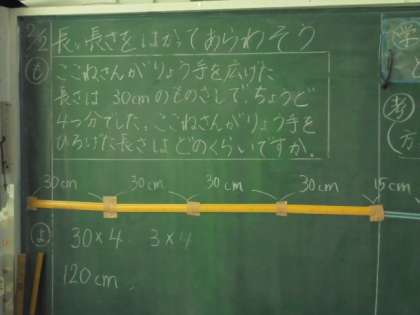 2/2 長い長さをはかってあらわそう
も ここねさんがりょう手を広げた
長さは 30cmのものさしで、ちょうど
4つ分でした。ここねさんがりょう手を
ひろげた長さはどのくらいですか。
30cm 30cm 30cm 30cm 15cm
よ 30×4 3×4
120cm
学
考
方